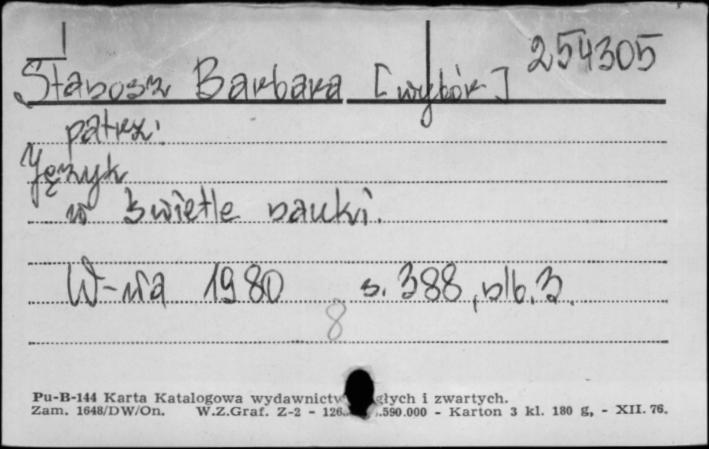 254305
Stanosz Barbara [wybór]
patrz:
Język
w świetle nauki.
W-wa 1980 s. 388, nlb. 3.
8
Pu-B-144 Karta Katalogowa wydawnictw ciągłych i zwartych.
Zam. 1648/DW/On. W.Z.Graf. Z-2 - 126. .590.000 - Karton 3 kl. 180 g, - XII. 76.